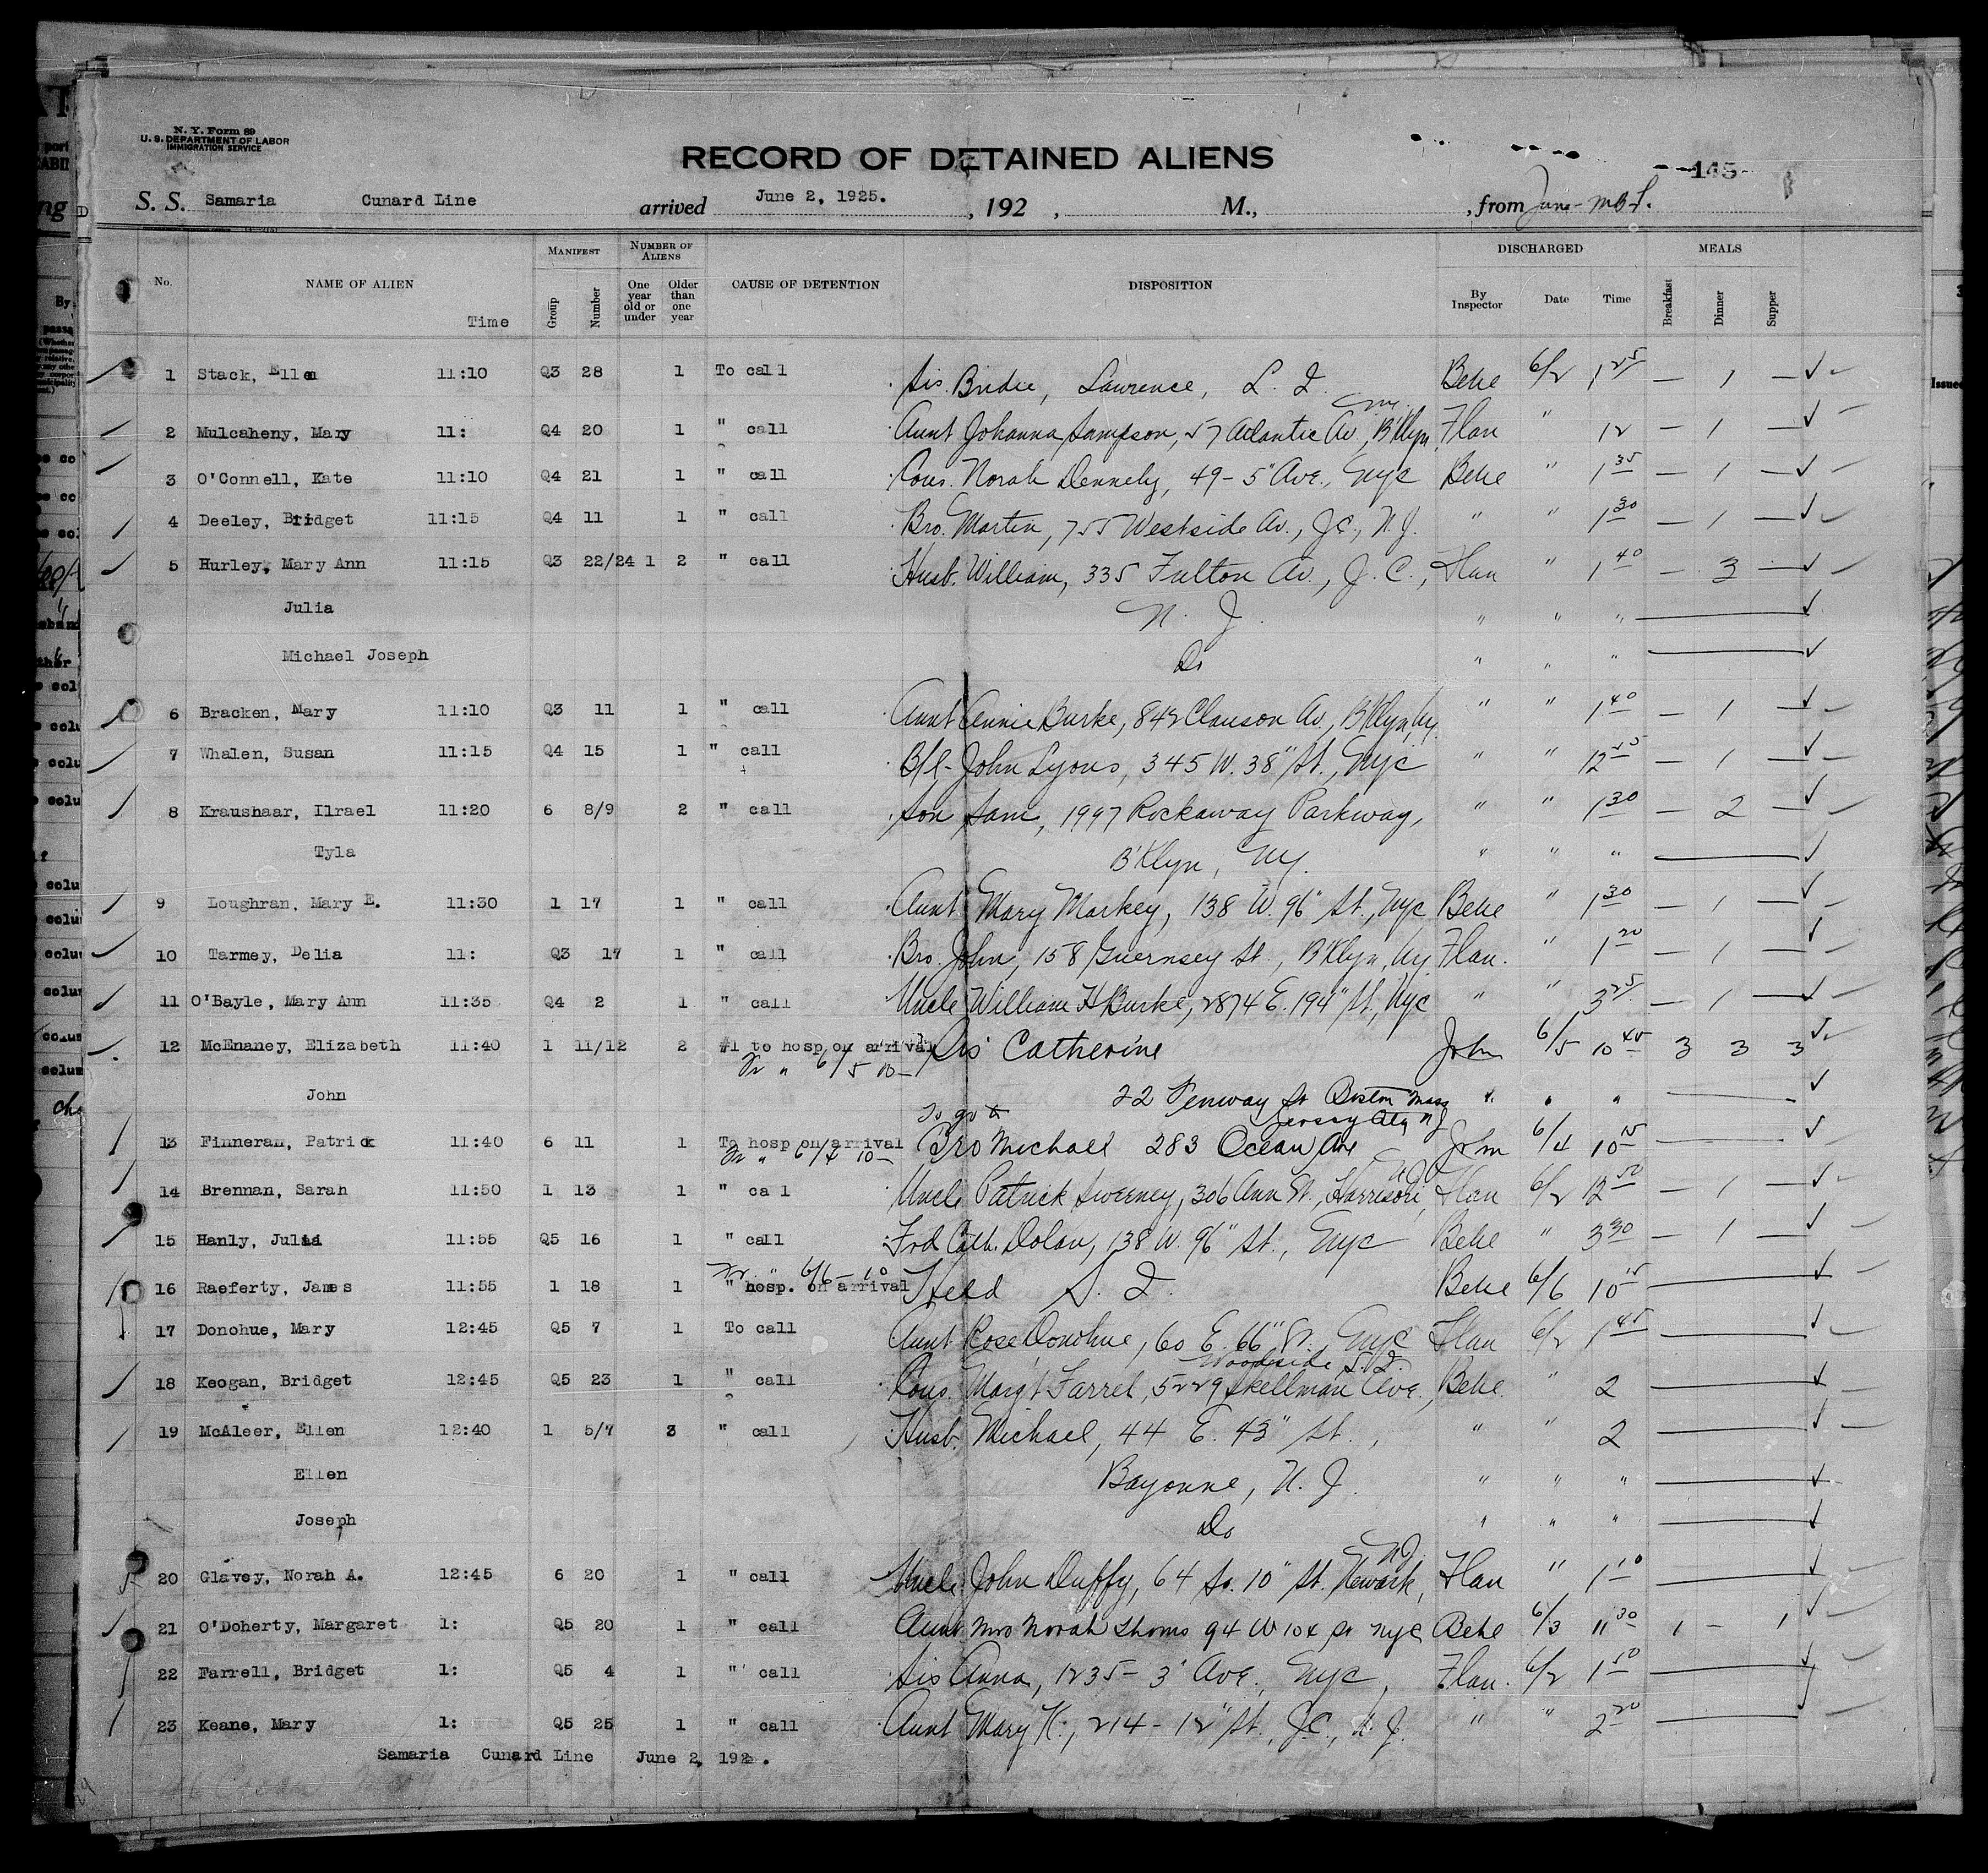 N. Y. Form 89
U. S. DEPARTMENT OF LABOR
IMMIGRATION SERVICE
RECORD OF DETAINED ALIENS
145-
S. S. Samaria Cunard Line arrived June 2, 1925. , 192 , M., , from
No. NAME OF ALIEN Time MANIFEST Group Number NUMBER OF ALIENS One year old or under Older than one year CAUSE OF DETENTION DISPOSITION DISCHARGED By Inspector Date Time MEALS Breakfast Dinner Supper
1 Stack, Ellen 11:10 Q3 28 1 To call Sis. Bridie, Lawrence, L. I. Behe 6/2 1 25 — 1 —
2 Mulcaheny, Mary 11: Q4 20 1 " call Aunt Johanna Sampson, 57 Atlantic Av., B'klyn, NY. Flan " 12 — 1 —
3 O'Connell, Kate 11:10 Q4 21 1 " call Cous. Norah Dennehy, 49 - 5" Ave., NYC Behe " 1 35 — 1 —
4 Deeley, Bridget 11:15 Q4 11 1 " call Bro. Martin, 755 Westside Av., J.C., N.J. " " 1 30 — 1 —
5 Hurley, Mary Ann 11:15 Q3 22/24 1 2 " call Husb. William, 335 Fulton Av., J. C., Flan " 1 40 — 3 —
Julia N. J. " " "
Michael Joseph Do " " "
6 Bracken, Mary 11:10 Q3 11 1 " call Aunt Annie Burke, 842 Clauson Av, B'klyn, NY. " " 1 40 — 1 —
7 Whalen, Susan 11:15 Q4 15 1 " call B/l - John Lyons, 345 W. 38" St., NYC " " 12 — 1 —
8 Kraushaar, Ilrael 11:20 6 8/9 2 " call Son Sam, 1997 Rockaway Parkway, " " 1 30 — 2 —
Tyla B'klyn, NY. " " "
9 Loughran, Mary E. 11:30 1 17 1 " call Aunt Mary Markey, 138 W. 96" St., NYC Behe " 1 30 — 1 —
10 Tarmey, Delia 11: Q3 17 1 " call Bro. John, 158 Guernsey St., B'klyn, NY Flan. " 1 20 — 1 —
11 O'Bayle, Mary Ann 11:35 Q4 2 1 " call Uncle William H Burke, 2874 E. 194" St., NYC " " 3 25 — 1 —
12 McEnaney, Elizabeth 11:40 1 11/12 2 #1 to hosp on arrival Sis Catherine John 6/5 10 45 3 3 3
Fr " 6/5 10—
John 22 Fenway St Boston Mass " " "
To go to Jersey City NJ
13 Finneran, Patrick 11:40 6 11 1 To hosp on arrival Bro Michael 283 Ocean Ave John 6/4 10 15
Fr " 6/4 10—
14 Brennan, Sarah 11:50 1 13 1 " ca l Uncle Patrick Sweeney, 306 Ann St., Harrison, NJ Flan 6/2 12 50 — 1 —
15 Hanly, Julia 11:55 Q5 16 1 " call Frd. Cath. Dolan, 138 W. 96" St., NYC Behe " 3 30 — 1 —
Fr. " 6/6 - 10
16 Raeferty, James 11:55 1 18 1 " hosp. on arrival Held S. I. Behe 6/6 10 15
17 Donohue, Mary 12:45 Q5 7 1 To call Aunt Rose Donohue, 60 E. 66" St., NYC Flan 6/2 1 45
Woodside, L.I.
18 Keogan, Bridget 12:45 Q5 23 1 " call Cous. Marg't Farrel, 5229 Skellman Ave., Behe " 2
19 McAleer, Ellen 12:40 1 5/7 3 " call Husb. Michael, 44 E. 43" St., " " 2
Ellen Bayonne, N. J. " " "
Joseph Do " " "
20 Glavey, Norah A. 12:45 6 20 1 " call Uncle John Duffy, 64 So. 10" St., Newark, NJ Flan " 1 10
21 O'Doherty, Margaret 1: Q5 20 1 " call Aunt Mrs Norah Thoms 94 W 104 St NYC Behe 6/3 11 30 1 - 1
22 Farrell, Bridget 1: Q5 4 1 " call Sis Anna, 1235 - 3" Ave., NYC, Flan. 6/2 1 50
23 Keane, Mary 1: Q5 25 1 " call Aunt Mary K., 214 - 12" St., J.C., N. J. " " 2 20
Samaria Cunard Line June 2, 192 .